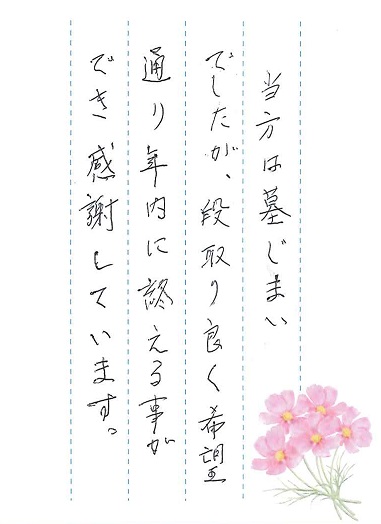 当方は墓じまい
でしたが、段取り良く希望
通り年内に終える事が
でき感謝しています。